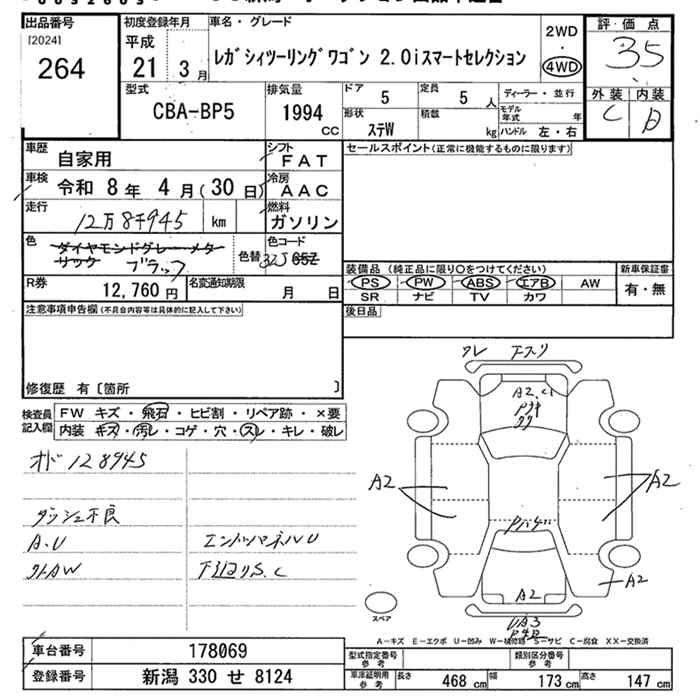 出品番号
[2024]
264
初度登録年月
平成
21 3 月
車名・グレード
レガシィツーリングワゴン 2.0iスマートセレクション
2WD
・
4WD
評価点
3.5
外装 内装
C B
型式
CBA-BP5
排気量
1994
cc
ドア
5
定員
5 人
形状
ステW
積載
kg
ディーラー・並行
モデル年式 年
ハンドル 左・右
車歴
自家用
シフト
FAT
車検
令和 8 年 4 月(30 日)
冷房
AAC
走行
12万8千945 km
燃料
ガソリン
色
ダイヤモンドグレー・メタリック
ブラック
色替
色コード
32J 65Z
R券
12,760 円
名変通知期限
月 日
セールスポイント(正常に機能するものに限ります)
装備品 (純正品に限り○をつけてください)
新車保証書
PS PW ABS エアB AW
SR ナビ TV カワ
有・無
後日品
注意事項申告欄(不具合内容等は具体的に記入して下さい)
修復歴 有〔箇所 〕
検査員記入欄
FW キズ・飛石・ヒビ割・リペア跡・×要
内装 キズ・汚レ・コゲ・穴・スレ・キレ・破レ
オド128945
ダッシュ不良
A.U
外AW
エンドパネルU
下回りS.C
ワレ
A2
A2
A2
A2
スペア
A−キズ E−エクボ U−凹み W−補修跡 S−サビ C−腐食 XX−交換済
車台番号
178069
登録番号
新潟 330 せ 8124
型式指定番号
参考
類別区分番号
参考
車庫証明用
参考
長さ 468 cm
幅 173 cm
高さ 147 cm